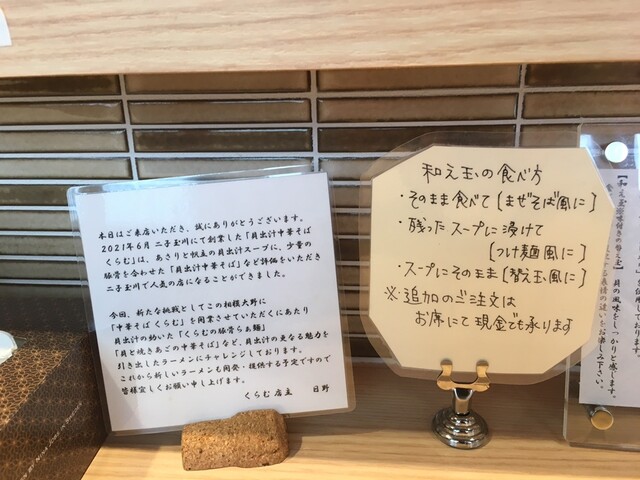 本日はご来店いただき、誠にありがとうございます。
2021年6月 二子玉川にて創業した「貝出汁中華そば
くらむ」は、あさりと帆立の貝出汁スープに、少量の
豚骨を合わせた「貝出汁中華そば」など評価をいただき
二子玉川で人気の店になることができました。
今回、新たな挑戦としてこの相模大野に
「中華そば くらむ」を開業させていただくにあたり
貝出汁の効いた「くらむの豚骨らぁ麺」
「貝と焼きあごの中華そば」など、貝出汁の更なる魅力を
引き出したラーメンにチャレンジしております。
これから新しいラーメンも開発・提供する予定ですので
皆様宜しくお願い申し上げます。
くらむ 店主 日野
和え玉の食べ方
・そのまま食べて[まぜそば風に]
・残ったスープに浸けて
[つけ麺風に]
・スープにそのまま[替え玉風に]
※追加のご注文は
お席にて現金でも承ります
貝の風味をしっかりと感じます。
の違いをお楽しみ下さい。